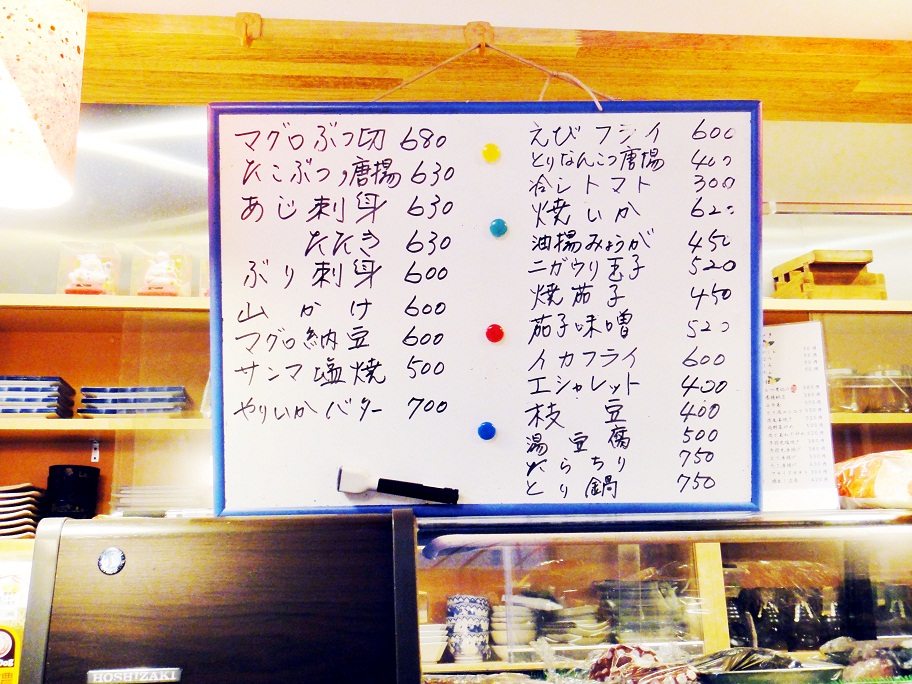 マグロぶつ切 680
たこぶつ唐揚 630
あじ刺身 630
たたき 630
ぶり刺身 600
山かけ 600
マグロ納豆 600
サンマ塩焼 500
やりいかバター 700
えびフライ 600
とりなんこつ唐揚 400
冷しトマト 300
焼いか 620
油揚みょうが 450
ニガウリ玉子 520
焼茄子 450
茄子味噌 520
イカフライ 600
エシャレット 400
枝豆 400
湯豆腐 500
たらちり 750
とり鍋 750
HOSHIZAKI